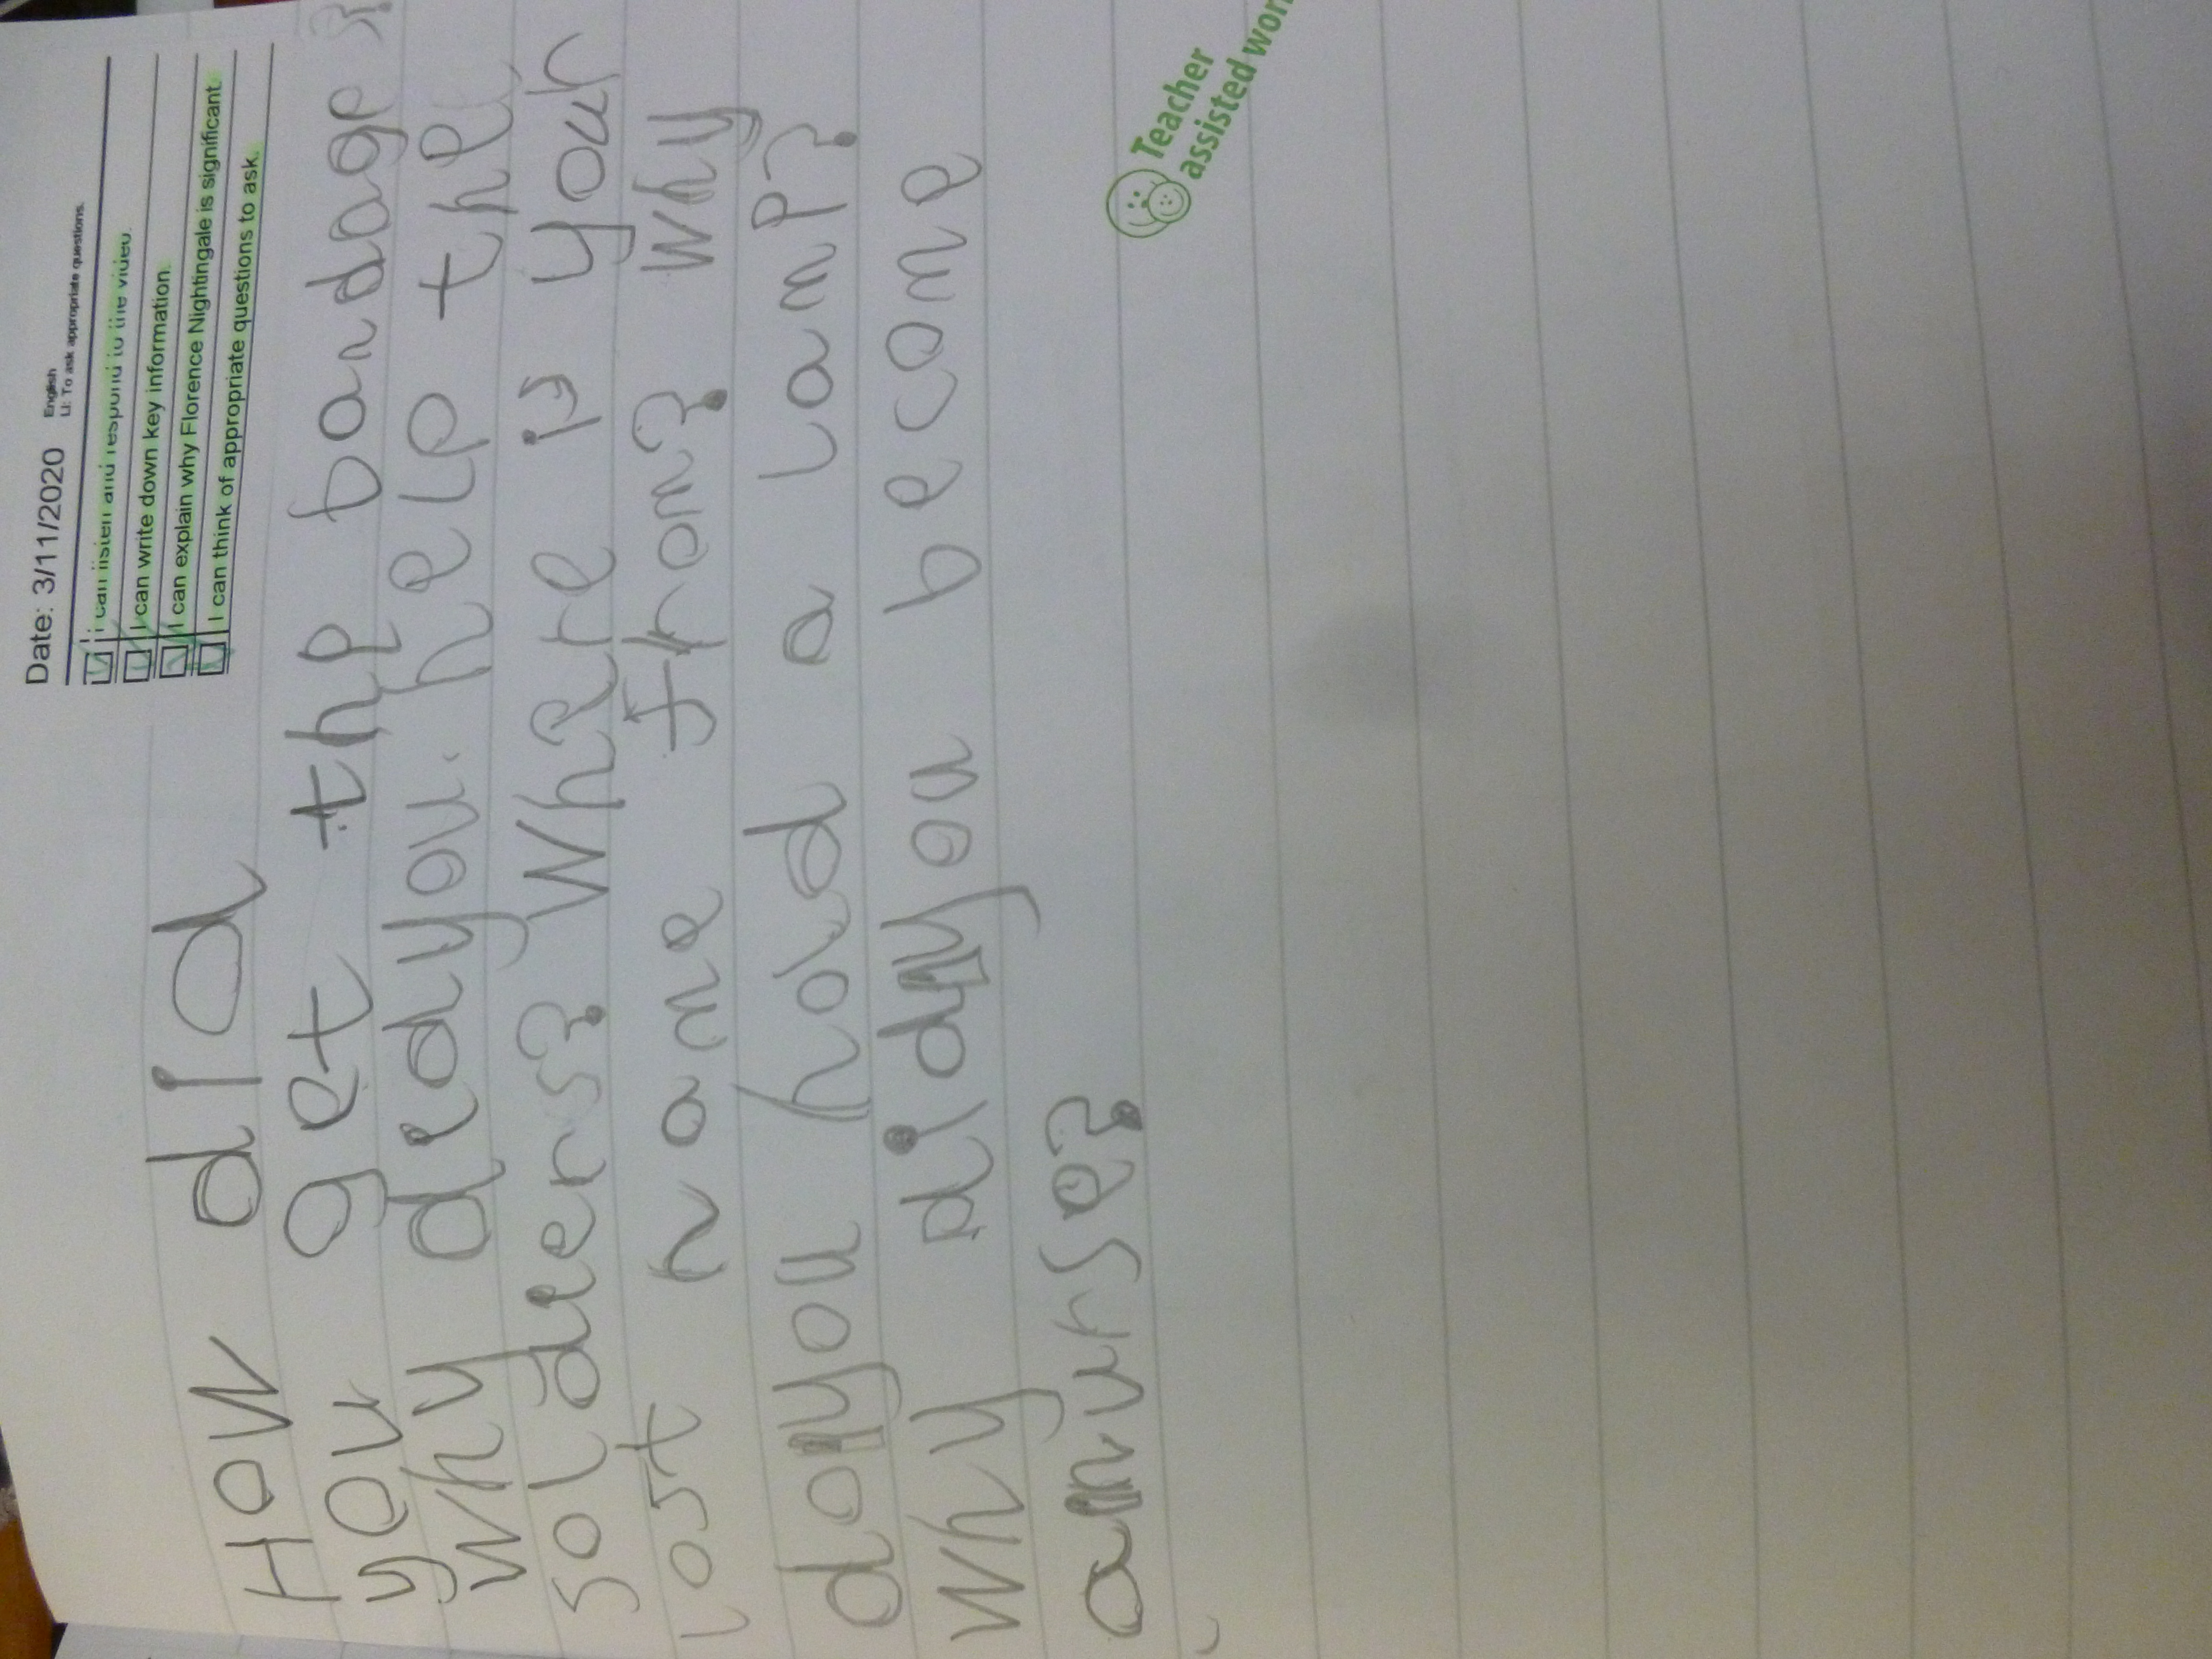 Date: 3/11/2020
English
LI: To ask appropriate questions.
I can listen and respond to the video.
I can write down key information.
I can explain why Florence Nightingale is significant.
I can think of appropriate questions to ask.
How did
you get the bandage?
Why did you help the
soldiers? Where is your
last name from? Why
do you hold a lamp?
Why did you become
a nurse?
Teacher
assisted